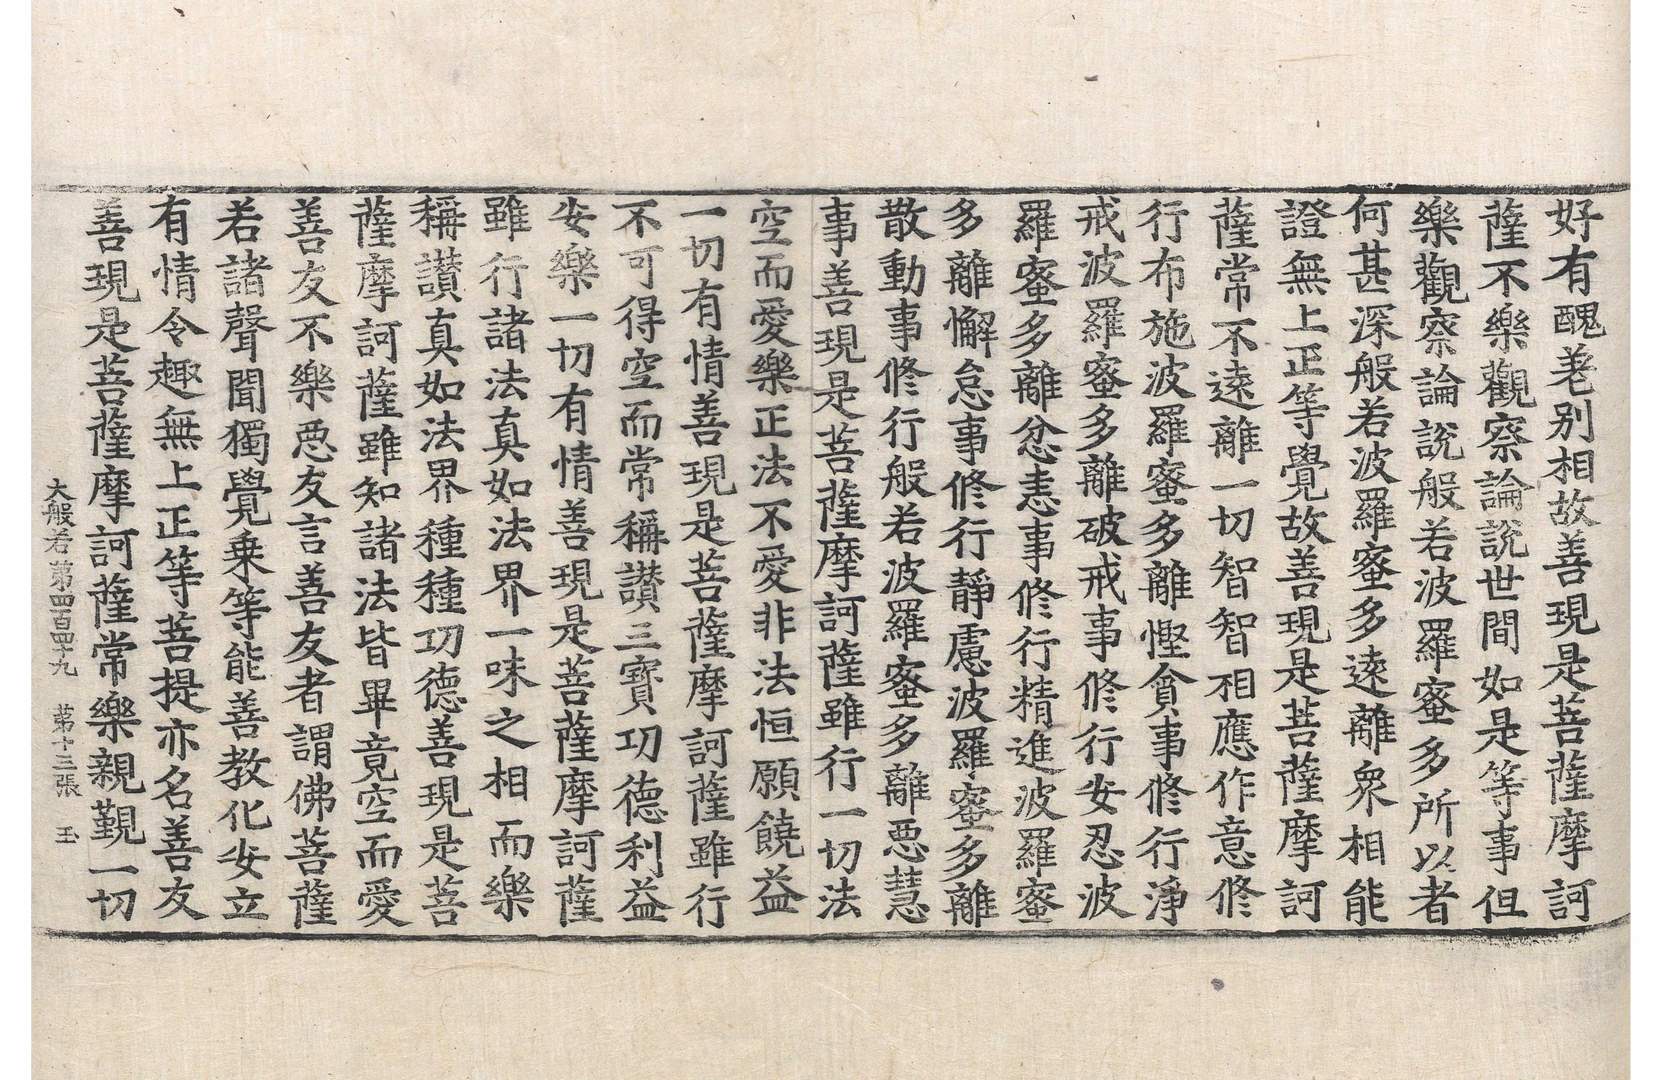 好有醜差別相故善現是菩薩摩訶
薩不樂觀察論說世間如是等事但
樂觀察論說般若波羅蜜多所以者
何甚深般若波羅蜜多遠離衆相能
證無上正等覺故善現是菩薩摩訶
薩常不遠離一切智智相應作意修
行布施波羅蜜多離慳貪事修行淨
戒波羅蜜多離破戒事修行安忍波
羅蜜多離忿恚事修行精進波羅蜜
多離懈怠事修行靜慮波羅蜜多離
散動事修行般若波羅蜜多離惡慧
事善現是菩薩摩訶薩雖行一切法
空而愛樂正法不愛非法恒願饒益
一切有情善現是菩薩摩訶薩雖行
不可得空而常稱讃三寶功德利益
安樂一切有情善現是菩薩摩訶薩
雖行諸法真如法界一味之相而樂
稱讃真如法界種種功德善現是菩
薩摩訶薩雖知諸法皆畢竟空而愛
善友不樂惡友言善友者謂佛菩薩
若諸聲聞獨覺乗等能善教化安立
有情令趣無上正等菩提亦名善友
善現是菩薩摩訶薩常樂親覲一切
大般若第四百四十九　第十三張　玉